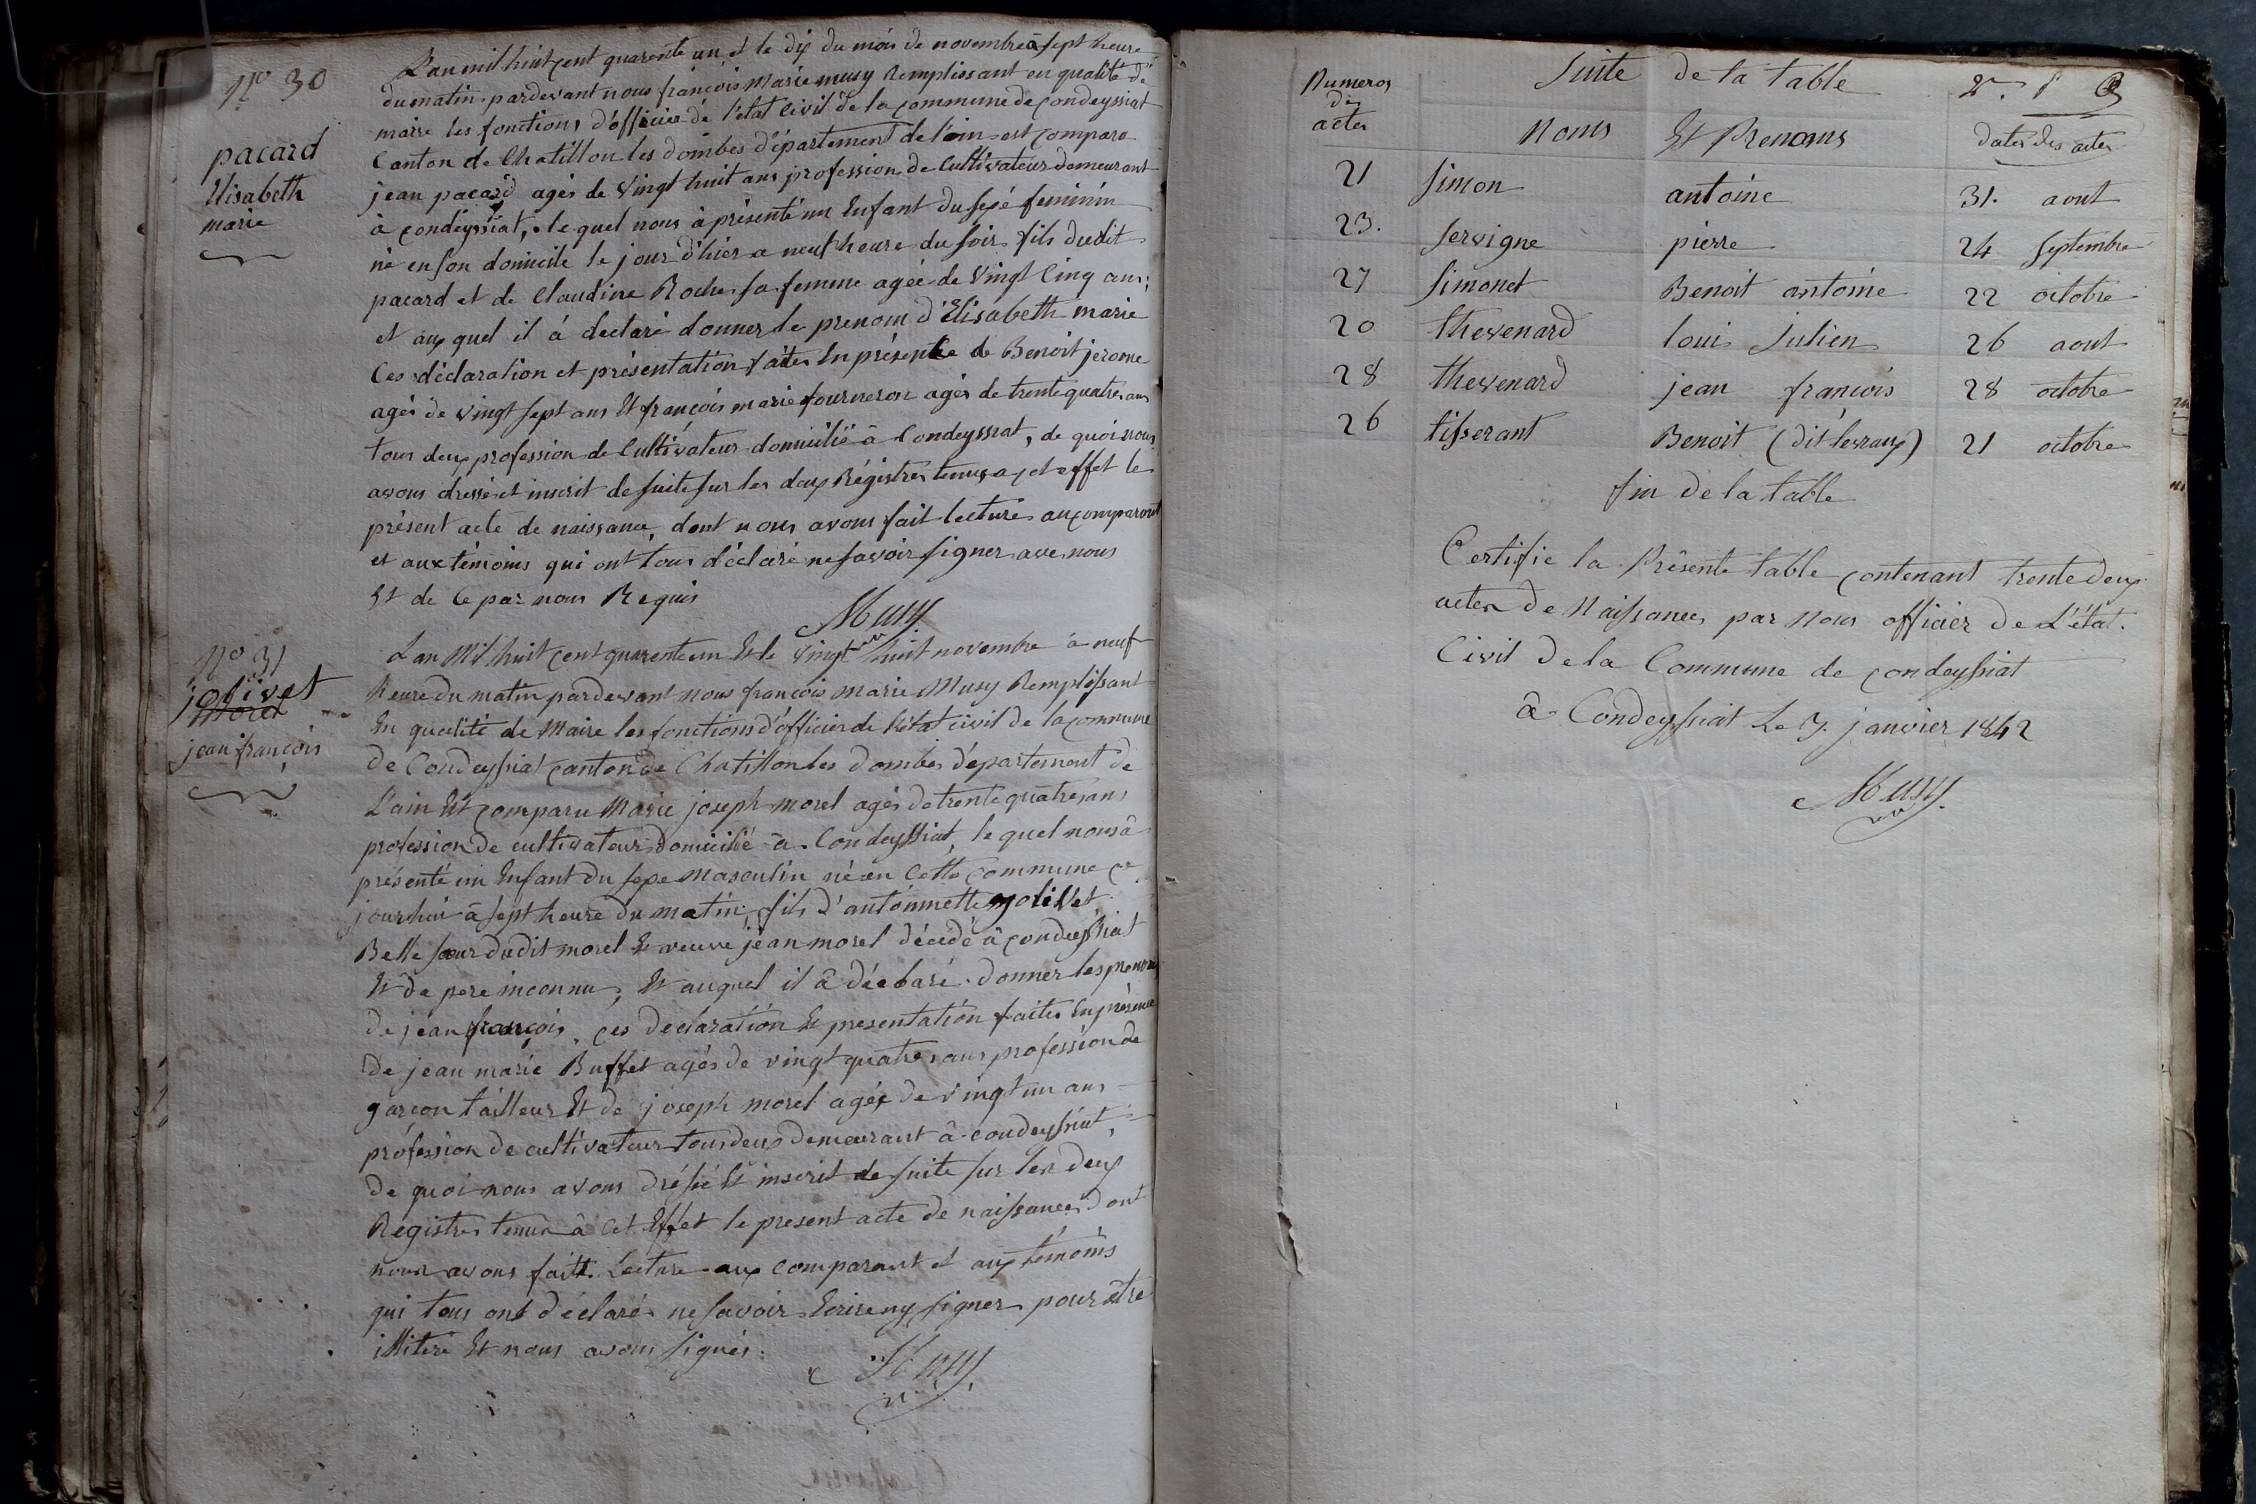 N° 30
pacard
Elisabeth
marie
L'an mil huit cent quarente un et le dix du mois de novembre à sept heure
du matin pardevant nous françois Marie musy Remplissant en qualité de
maire les fonctions d'officier de l'etat Civil de la commune de condeyssiat
Canton de Chatillon les dombes département de l'ain est comparu
jean pacard agés de vingt huit ans profession de Cultivateur demeurant
à condeyssiat, le quel nous à présenté un Enfant du sexe feminin
né en son domicile le jour d'hier a neuf heure du soir fils dudit
pacard et de Claudine Roche sa femme agée de vingt Cinq ans;
et aux quel il á declaré donner le prenom d'Elisabeth marie
Ces déclaration et présentation faites En présence de Benoit jerome
agés de vingt sept ans Et françois marie fourneron agés de trente quatres ans
tous deux profession de Cultivateur domicilié à Condeyssiat, de quoi nous
avons dressé et inscrit de suite sur les deux Régistres tenus a cet effet le
présent acte de naissance, dont nous avons fait lecture au comparant
et aux témoins qui ont tous déclaré ne savoir signer avec nous
Et de Ce par nous Requis
Musy
N° 31
jolivet
morel
jean françois
L'an Mil huit cent quarente un Et le vingt huit novembre à neuf
heure du matin pardevant nous françois Marie Musy Remplissant
En qualité de Maire les fonctions d'officier de l'état civil de la commune
de Condeyssiat canton de Chatillon les dombes département de
L'ain Est comparu Marie joseph morel agés de trente quatres ans
profession de cultivateur domicilié à Condeyssiat, le quel nous à
présenté un Enfant du sexe Masculin né en Cette commune ce
jourd'hui à sept heure du matin, fils d'antoinnette jolivet
Belle sœur dudit morel Et veuve jean morel décédé à condeyssiat
Et de pere inconnu, Et auquel il à déclaré donner les prenoms
de jean françois, ces declaration Et presentation faites En présence
de jean marie Buffet agés de vingt quatres ans profession de
garçon tailleur Et de joseph morel agés de vingt un ans
profession de cultivateur tous deux demeurant à condeyssiat,
de quoi nous avons dréssé Et inscrit de suite sur les deux
Régistres tenus à Cet Effet le present acte de naissances dont
nous avons fait Lecture aux comparant et aux témoins
qui tous ont déclarés ne savoir Ecrire ny signer pour être
illitéré Et nous avons signés.
Musy
Suite de la table
Numeros
des
actes
Noms Et Prenoms dates des actes
21 Simon antoine 31. aout
23. Servigne pierre 24 Septembre
27 Simonet Benoit antoine 22 octobre
20 thevenard louis Julien 26 aout
28 thevenard jean francois 28 octobre
26 tisserant Benoit (dit levraux) 21 octobre
fin de la table
Certifie la Présente table contenant trente deux
actes de Naissances par Nous officier de L'état.
Civil de la Commune de condeyssiat
à Condeyssiat Le 7. janvier 1842
Musy